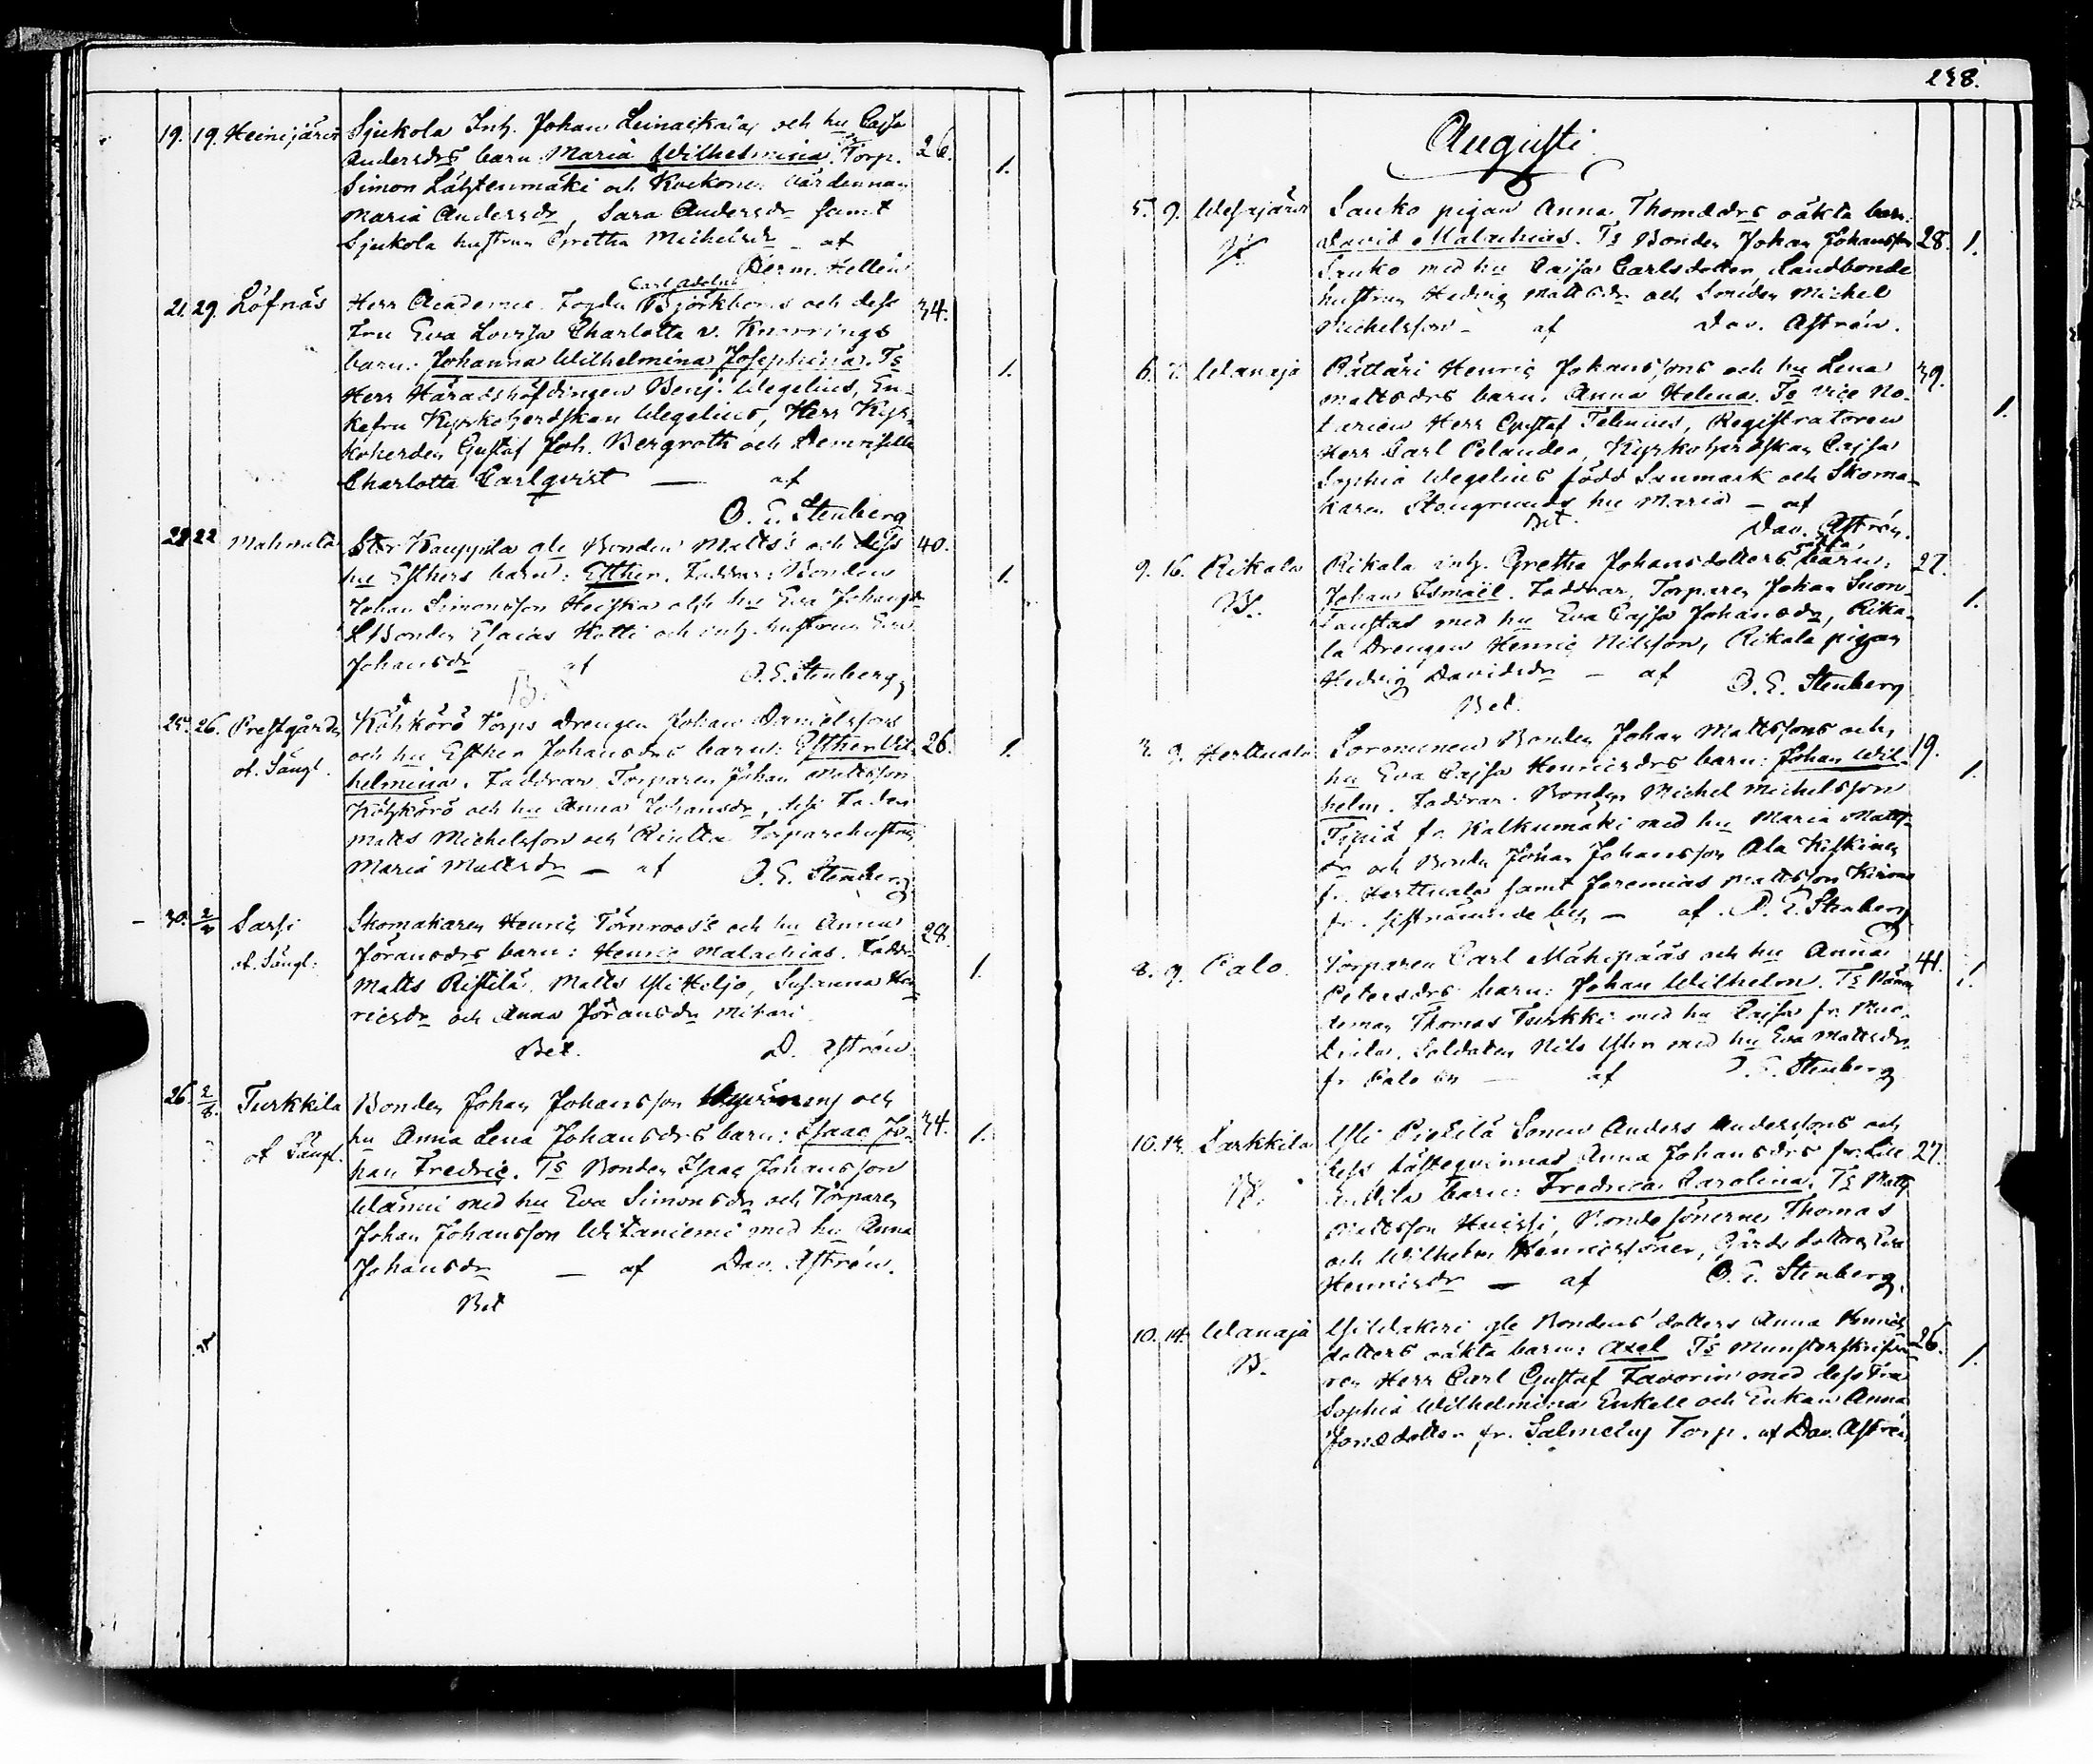 19. 19. Heinijärvi Sjukola Inh. Johan Leinaskalas och hu Cajsa
Andersdrs barn Maria Wilhelmina. Ts Torp. 26. 1.
Simon Lähtenmäki och Kuckonen värdinnan
Maria Andersdr, Sara Andersdr samt
Sjukola hustrun Gretha Michelsdr – af
Herm. Hellén
Carl Adolph
21. 29. Löfnäs Herr Academie Fogden Björkboms och dess 34.
Fru Eva Lovisa Charlotta v. Knorrings
barn: Johanna Wilhelmina Josephina. Ts 1.
Herr Häradshöfdingen Benj. Wegelius, En-
kefru Kyrkoherdskan Wegelius, Herr Kyr-
koherden Gustaf Joh. Bergroth och Demoiselle
Charlotta Carlqvist — af
O. E. Stenberg
22 22 Mahnala Stor Kauppila gle Bonden Matts's och dess 40.
hu Esthers barn: Esther. Faddrar: Bonden 1.
Johan Simonsson Heiska och hu Eva Johansdr
Bonden Esaias Kotti och inh. hustrun Eva
Johansdr af O. E. Stenberg
B.
25. 26. Prestgårds Köhkörö torps Drengen Johan Danielssons
of. Sängl. och hu Esther Johansdrs barn: Esther Wil- 26. 1.
helmina. Faddrar Torparen Johan Mattsson
Köhkörö och hu Anna Johansdr, dess Fader
Matts Michelsson och Torparehustrun
Maria Mattsdr — af O. E. Stenberg
30. 2/8 Sarsi Skomakaren Henric Törnroos's och hu Anna 28.
of. Sängl: Göransdrs barn: Henric Malachias. Faddr:
Matts Ristilä, Matts Yli Heljo, Susanna Hen- 1.
ricsdr och Anna Göransdr Mikari
Bet. D. Aström
26. 2/8. Turkkila Bonden Johan Johansson och
of Sängl. hu Anna Lena Johansdrs barn: Isaac Jo- 34. 1.
han Fredric. Ts Bonden Isaac Johansson
Wänni med hu Eva Simonsdr och Torparen
Johan Johansson Witaniemi med hu Anna
Johansdr — af Dav. Aström.
Bet
238.
Augusti
5. 9. Wesajärvi Sauko pigan Anna Thomædrs oäkta barn:
David Malachias. Ts Bonden Johan Johansson 28. 1.
Sauko med hu Cajsa Carlsdotter Landbonde
hustrun Hedvig Mattsdr och Smeden Michel
Michelsson – af Dav. Aström.
6. 7. Wanaja Rättäri Henric Johanssons och hu Lena 39.
Mattsdrs barn: Anna Helena. Ts Vice No- 1.
tarien Herr Gustaf Telenius, Registratoren
Herr Carl Celander, Kyrkoherdskan Cajsa
Sophia Wegelius född Sanmark och Skoma-
karen Stengrunds hu Maria – af
Bet. Dav. Aström.
oäkta
9. 16. Rikala Rikala inh. Gretha Johansdotters barn: 27.
B. Johan Ismaël. Faddrar, Torparen Johan Suon- 1.
taustas med hu Eva Cajsa Johansdr, Rika-
la Drengen Henric Nilsson, Rikala pigan
Hedvig Davidsdr – af O. E. Stenberg
Bet.
3. 9. Herttuala Sormunen Bonden Johan Mattssons och 19.
hu Eva Cajsa Henricsdrs barn: Johan Wil- 1.
helm. Faddrar: Bonden Michel Michelsson
Tipiä fr. Kalkumäki med hu Maria Matts-
dr och Bonden Johan Johansson Ala Kiskinen
fr. Herttuala samt Jeremias Mattsson
fr. by — af O. E. Stenberg
8. 9. Palo. Torparen Carl Mähcipääs och hu Anna 41. 1.
Petersdrs barn: Johan Wilhelm. Ts Nämn
deman Thomas Turkki med hu Cajsa fr. Muo-
Soldaten Nils Ylin med hu Eva Mattsdr
fr. Palo by — af O. E. Stenberg
10. 13. Sarkkila Yli Pietilä Sonen Anders Anderssons och
B. dess Lästeqvinnas Anna Johansdrs fr. Lill 27.
barn: Fredrica Carolina. Ts Matts
Mattsson Huissi, Bonde sönerne Thomas
och Wilhelm Henricssöner, Gårds dottren Eva
Henricsdr — af O. E. Stenberg.
10. 14. Wanaja gle Bondens dotters Anna Henrics
B. dotters oäkta barn: Axel Ts Munsterskrifva- 26. 1.
ren Herr Carl Gustaf Favorin med dess Fru
Sophia Wilhelmina Enkell och Enkan Anna
Jonsdotter fr. Salmelus Torp. af Dav. Aström